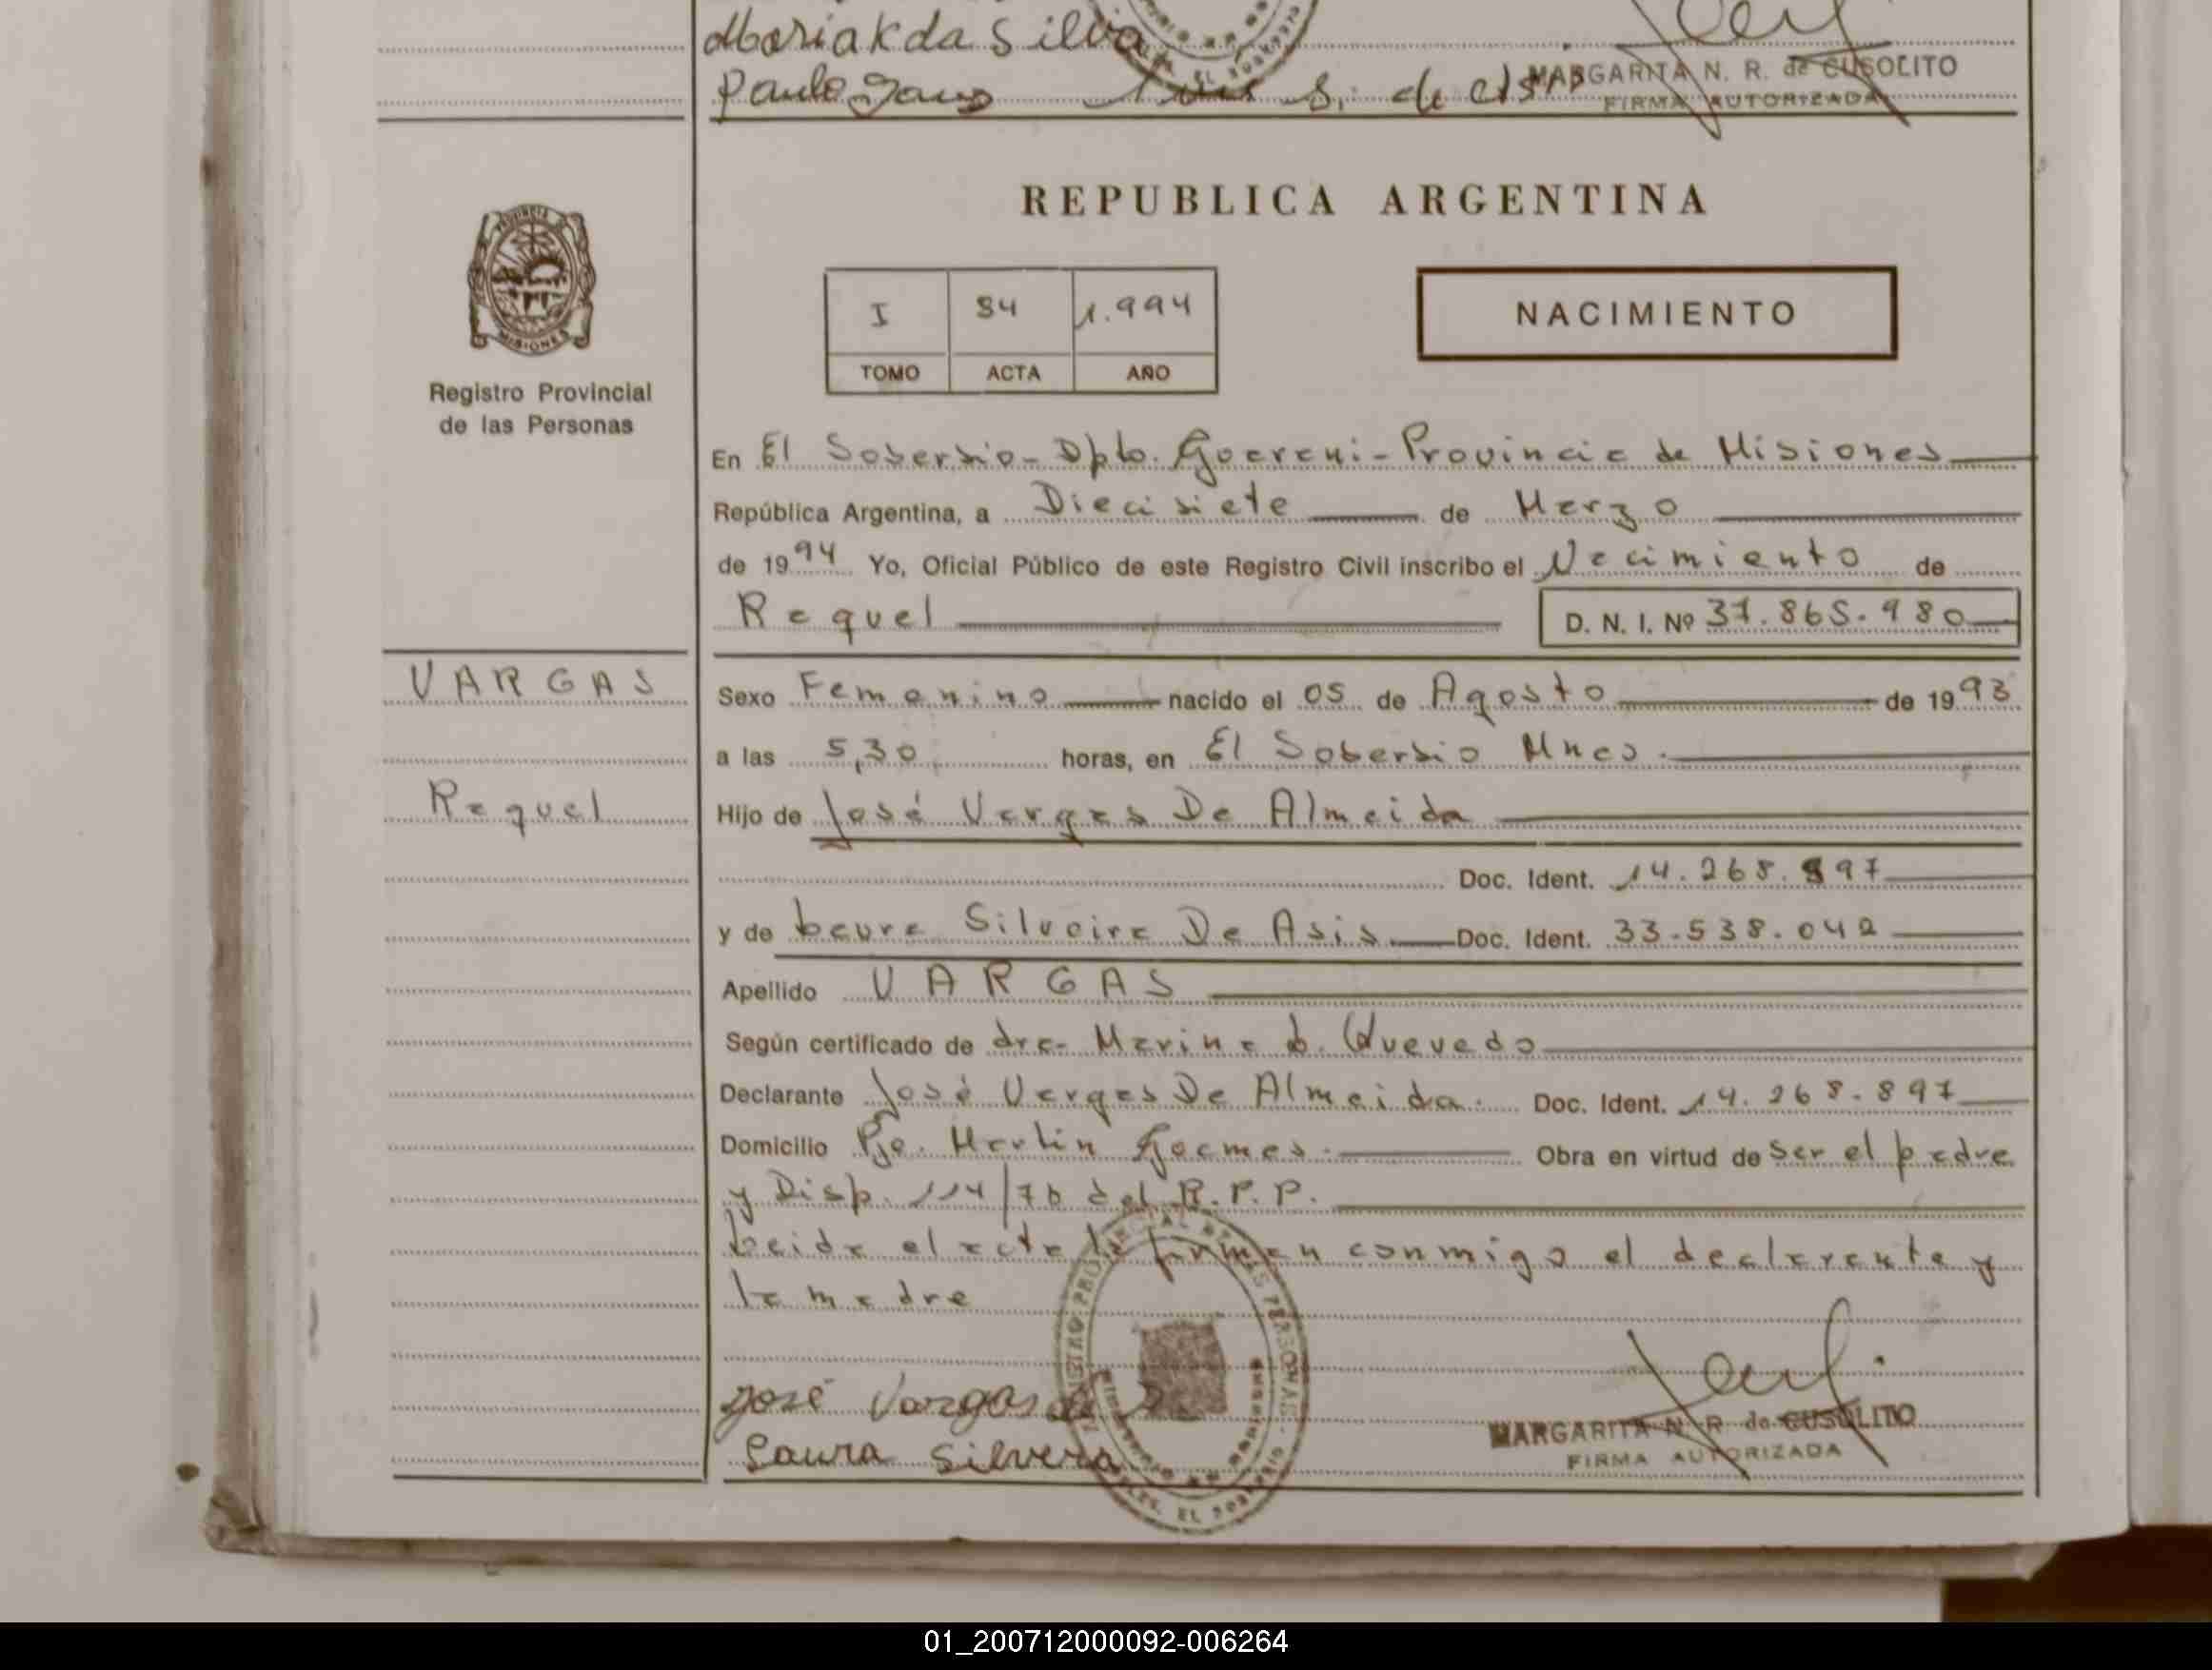 Maria K da Silva
Paulo
MARGARITA N. R. de CUSOLITO
FIRMA AUTORIZADA
REPUBLICA ARGENTINA
PROVINCIA
MISIONES
I 84 1.994
TOMO ACTA AÑO
NACIMIENTO
Registro Provincial
de las Personas
En El Soberbio - Dpto. Guarani - Provincia de Misiones
República Argentina, a Diecisiete de Marzo
de 1994 Yo, Oficial Público de este Registro Civil inscribo el Nacimiento de
Raquel D. N. I. Nº 37.865.980
VARGAS
Sexo Femenino nacido el 05 de Agosto de 1993
a las 5,30 horas, en El Soberbio Mnes.
Raquel
Hijo de José Vargas De Almeida
Doc. Ident. 14.268.897
y de Laura Silveira De Asis Doc. Ident. 33.538.042
Apellido VARGAS
Según certificado de dra. Marina L. Quevedo
Declarante José Vargas De Almeida. Doc. Ident. 14.268.897
Domicilio Pje. Martin Guemes. Obra en virtud de ser el padre
y Disp. 114/76 del R.P.P.
Leida el acta la firman conmigo el declarante y
la madre
José Vargas de
Laura Silvera
MARGARITA N. R. de CUSOLITO
FIRMA AUTORIZADA
01_200712000092-006264